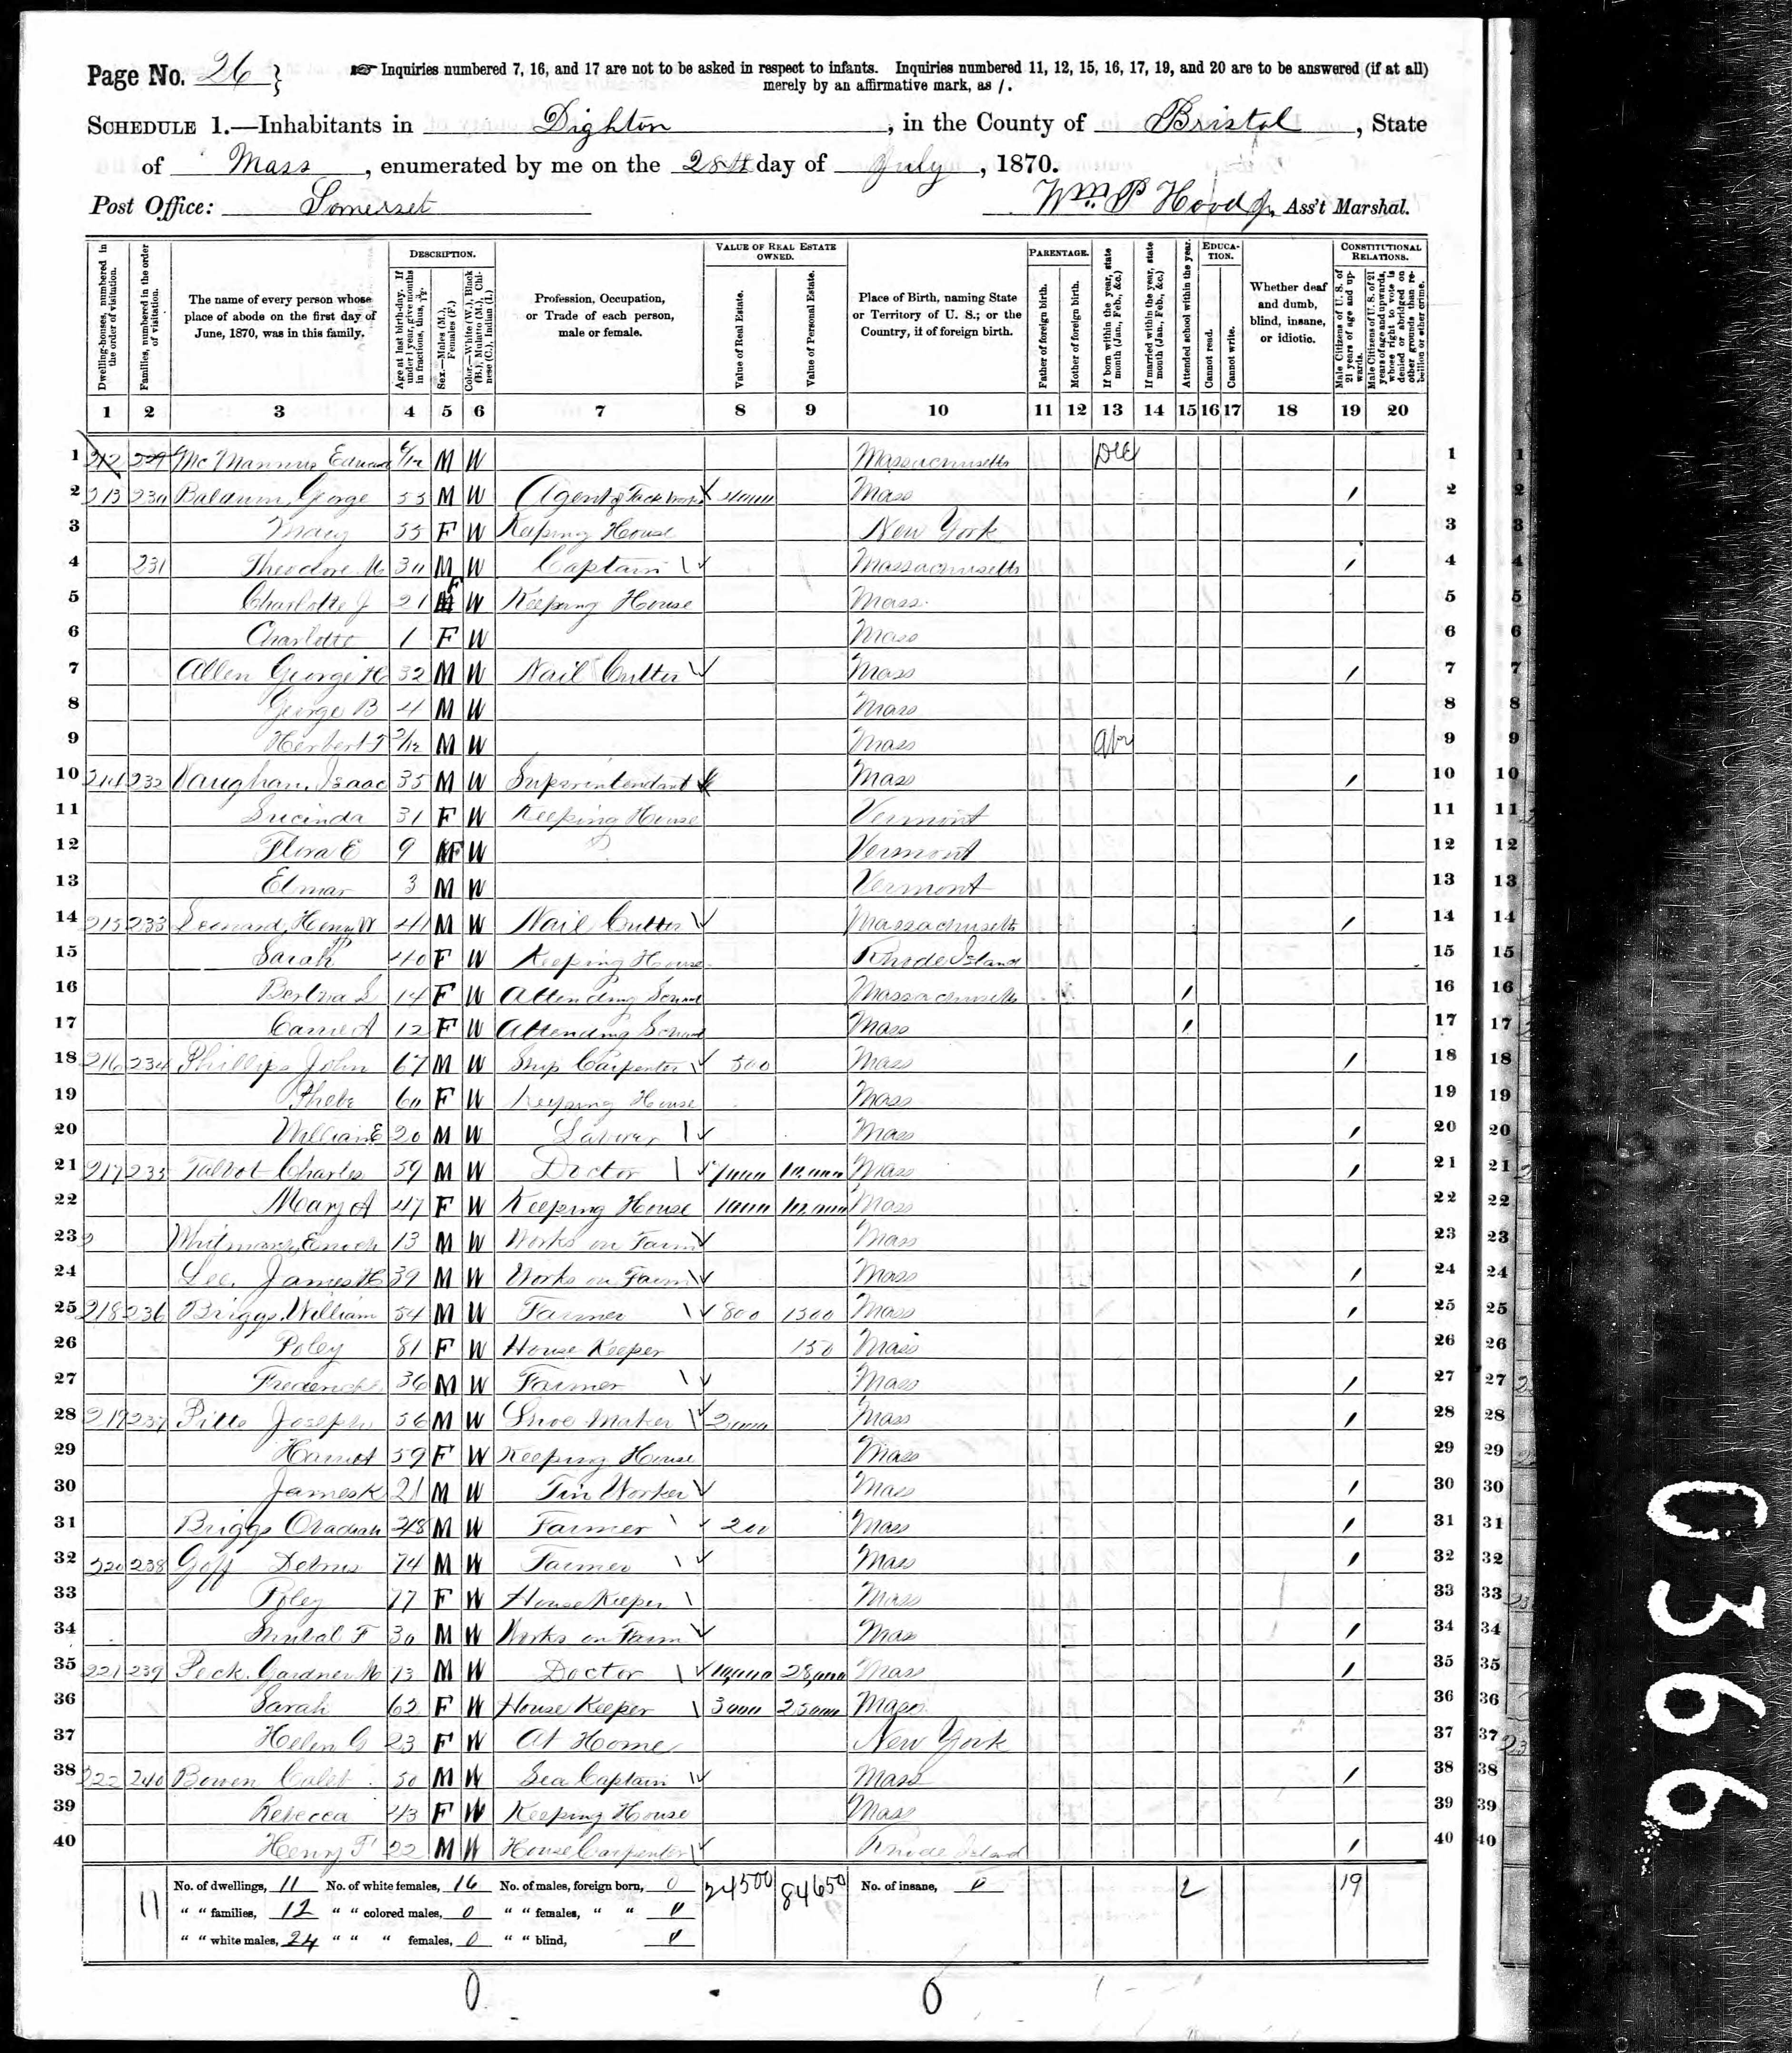 Page No. 26 } Inquiries numbered 7, 16, and 17 are not to be asked in respect to infants. Inquiries numbered 11, 12, 15, 16, 17, 19, and 20 are to be answered (if at all)
merely by an affirmative mark, as /.
SCHEDULE 1.—Inhabitants in Dighton, in the County of Bristol, State
of Mass, enumerated by me on the 28th day of July, 1870.
Post Office: Somerset Wm. P Hood Jr, Ass't Marshal.
Dwelling-houses, numbered in the order of visitation.
Families, numbered in the order of visitation.
The name of every person whose place of abode on the first day of June, 1870, was in this family.
DESCRIPTION.
Age at last birth-day. If under 1 year, give months in fractions, thus, 3/12.
Sex.—Males (M.), Females (F.)
Color.—White (W.), Black (B.), Mulatto (M.), Chinese (C.), Indian (I.)
Profession, Occupation, or Trade of each person, male or female.
VALUE OF REAL ESTATE OWNED.
Value of Real Estate.
Value of Personal Estate.
Place of Birth, naming State or Territory of U. S.; or the Country, if of foreign birth.
PARENTAGE.
Father of foreign birth.
Mother of foreign birth.
If born within the year, state month (Jan., Feb., &c.)
If married within the year, state month (Jan., Feb., &c.)
Attended school within the year.
EDUCATION.
Cannot read.
Cannot write.
Whether deaf and dumb, blind, insane, or idiotic.
CONSTITUTIONAL RELATIONS.
Male Citizens of U. S. of 21 years of age and upwards.
Male Citizens of U. S. of 21 years of age and upwards, whose right to vote is denied or abridged on other grounds than rebellion or other crime.
1 2 3 4 5 6 7 8 9 10 11 12 13 14 15 16 17 18 19 20
1 212 229 McMannus Edward 6/12 M W Massachusetts Dec 1
2 213 230 Baldwin, George 53 M W Agent of Tack Works 4000 Mass / 2
3 Mary 55 F W Keeping House New York 3
4 231 Theodore M 30 M W Captain Massachusetts / 4
5 Charlotte J 21 F W Keeping House Mass. 5
6 Charlotte 1 F W Mass 6
7 Allen George H 32 M W Nail Cutter Mass / 7
8 George B 4 M W Mass 8
9 Herbert T 2/12 M W Mass Apr 9
10 214 232 Vaughan, Isaac 35 M W Superintendant Mass / 10
11 Lucinda 31 F W Keeping House Vermont 11
12 Flora E 9 F W Vermont 12
13 Elmar 3 M W Vermont 13
14 215 233 Leonard, Henry W 41 M W Nail Cutter Massachusetts / 14
15 Sarah 40 F W Keeping House Rhode Island 15
16 Bertha S 14 F W Attending School Massachusetts / 16
17 Carrie A 12 F W Attending School Mass / 17
18 216 234 Phillips John 67 M W Ship Carpenter 500 Mass / 18
19 Phebe 60 F W Keeping House Mass 19
20 William E 20 M W Laborer Mass / 20
21 217 235 Talbot Charles 59 M W Doctor 10,000 Mass / 21
22 Mary A 47 F W Keeping House 1000 10,000 Mass 22
23 Whitmarsh, Enoch 13 M W Works on Farm Mass 23
24 Lee, James H 39 M W Works on Farm Mass / 24
25 218 236 Briggs, William 54 M W Farmer 800 1500 Mass / 25
26 Poley 81 F W House Keeper 150 Mass 26
27 Frederick 36 M W Farmer Mass / 27
28 219 237 Pitts Joseph 56 M W Shoe Maker 2000 Mass / 28
29 Harriet 59 F W Keeping House Mass 29
30 James K 21 M W Tin Worker Mass / 30
31 Briggs Obadiah 48 M W Farmer 200 Mass / 31
32 220 238 Goff 74 M W Farmer Mass / 32
33 Poley 77 F W House Keeper Mass 33
34 30 M W Works on Farm Mass / 34
35 221 239 Peck, Gardner M 73 M W Doctor 10,000 28,000 Mass / 35
36 Sarah 62 F W House Keeper 3000 25000 Mass 36
37 Helen G 23 F W At Home New York 37
38 222 240 Bowen Caleb 50 M W Sea Captain Mass / 38
39 Rebecca 43 F W Keeping House Mass 39
40 Henry F 22 M W House Carpenter Rhode Island / 40
No. of dwellings, 11 No. of white females, 16 No. of males, foreign born, 0 24500 84650 No. of insane, 0 2 19
11 " " families, 12 " " colored males, 0 " " females, " " 0
" " white males, 24 " " " females, 0 " " blind, 0
0 0
0366